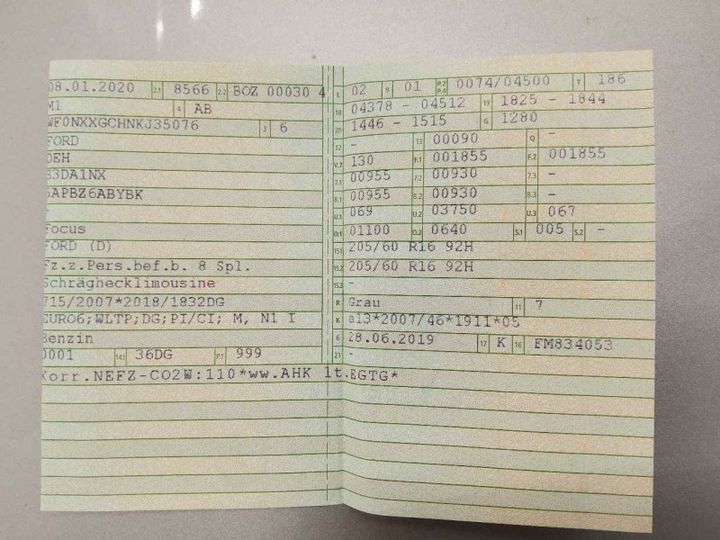 08.01.2020 2.1 8566 2.2 BOZ 00030 4
M1 4 AB
WF0NXXGCHNKJ35076 3 6
FORD
DEH
B3DA1NX
6APBZ6ABYBK
-
Focus
FORD (D)
Fz.z.Pers.bef.b. 8 Spl.
Schräghecklimousine
715/2007*2018/1832DG
EURO6;WLTP;DG;PI/CI; M, N1 I
Benzin
0001 14.1 36DG P.1 999
Korr.NEFZ-CO2W:110*ww.AHK lt.EGTG*
L 02 9 01 P.2 P.4 0074/04500 T 186
18 04378 - 04512 19 1825 - 1844
20 1446 - 1515 G 1280
12 - 13 00090 Q -
V.7 130 F.1 001855 F.2 001855
7.1 00955 7.2 00930 7.3 -
8.1 00955 8.2 00930 8.3 -
U.1 069 U.2 03750 U.3 067
O.1 01100 O.2 0640 S.1 005 S.2 -
15.1 205/60 R16 92H
15.2 205/60 R16 92H
15.3 -
R Grau 11 7
K e13*2007/46*1911*05
6 28.06.2019 17 K 16 FM834053
21 -